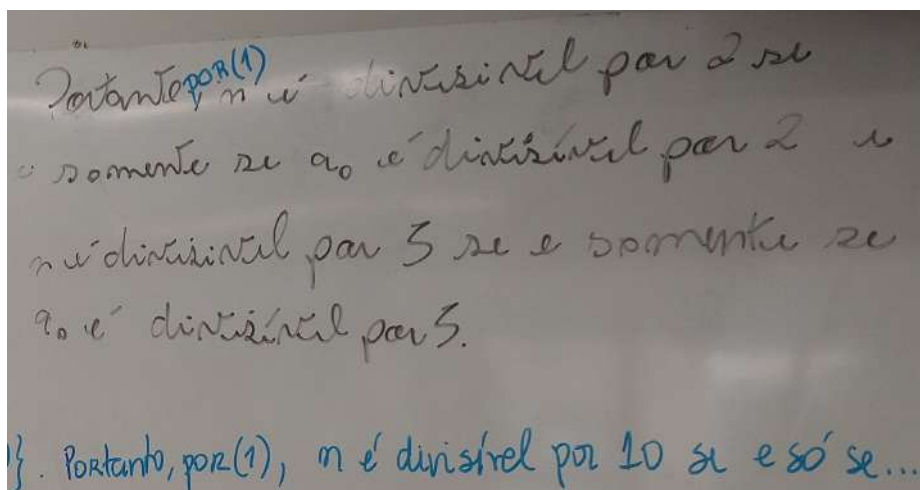 Portanto, por(1) n é divisível por 2 se
e somente se a₀ é divisível por 2 e
n é divisível por 5 se e somente se
a₀ é divisível por 5.
}. Portanto, por(1), n é divisível por 10 se e só se...